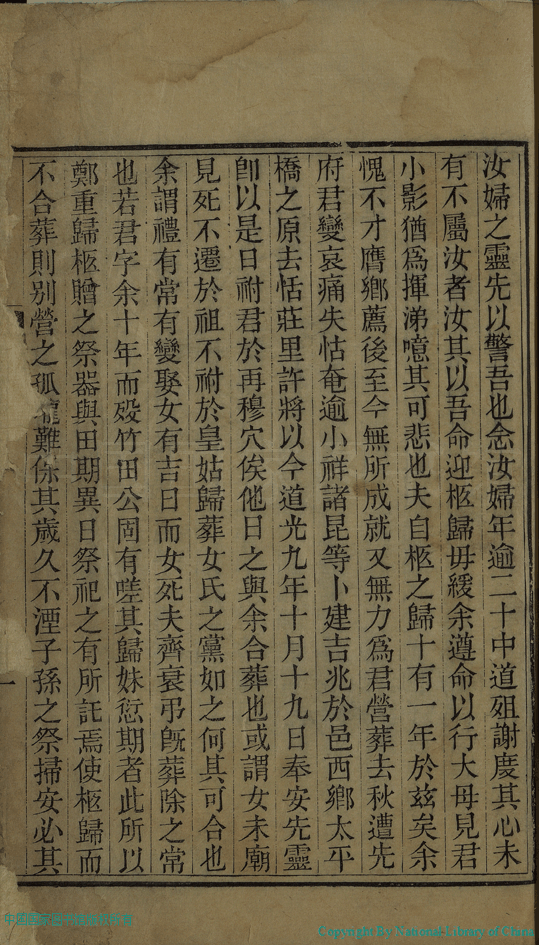 汝婦之靈先以警吾也念汝婦年逾二十中道殂謝慶其心未
有不屬汝者汝其以吾命迎柩歸毋緩余遵命以行大母見君
小影猶爲揮涕噫其可悲也夫自柩之歸十有一年於茲矣余
愧不才膺鄉薦後至今無所成就又無力爲君營葬去秋遭先
府君變哀痛失怙奄逾小祥諸昆等卜建吉兆於邑西鄉太平
橋之原去恬莊里許將以今道光九年十月十九日奉安先靈
卽以是日祔君於再穆穴俟他日之與余合葬也或謂女未廟
見死不遷於祖不祔於皇姑歸葬女氏之黨如之何其可合也
余謂禮有常有變娶女有吉日而女死夫齊衰弔旣葬除之常
也若君字余十年而歿竹田公固有嗟其歸妹愆期者此所以
鄭重歸柩贈之祭器與田期異日祭祀之有所託焉使柩歸而
不合葬則别營之孤難保其歲久不湮子孫之祭掃安必其
一
Copyright By National Library of China